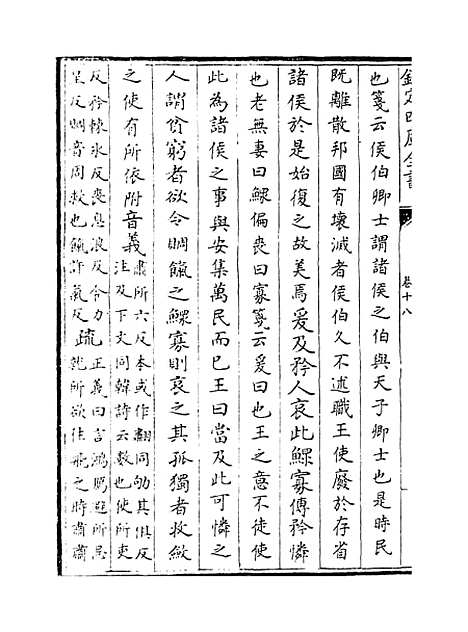 欽定四庫全書 卷十八
也箋云侯伯卿士謂諸侯之伯與天子卿士也是時民
既離散邦國有壞滅者侯伯久不述職王使廢於存省
諸侯於是始復之故美焉爰及矜人哀此鰥寡傳矜憐
也老無妻曰鰥偏喪曰寡箋云爰曰也王之意不徒使
此為諸侯之事與安集萬民而已王曰當及此可憐之
人謂貧窮者欲令賙餼之鰥寡則哀之其孤獨者收斂
之使有所依附音義肅所六反本或作翽同劬其俱反
注及下文同韓詩云數也使所吏
反矜棘冰反喪息浪反令力
呈反賙音周救也餼許氣反疏正義曰言鴻鴈避所忌
就所欲往飛之時肅肅